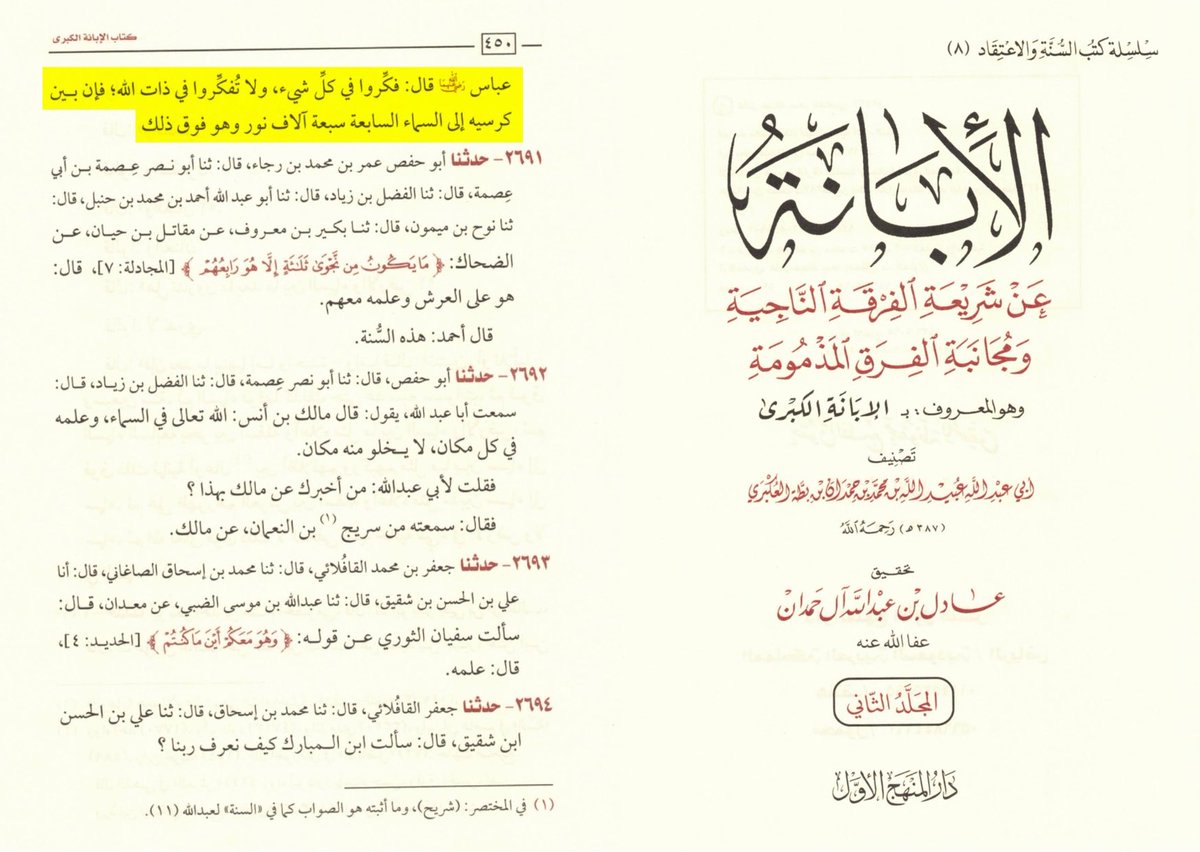 سِلْسِلَة كتُبُ السُّنَّةِ وَالاعْتِقَاد (٨)
الإِبَانَةُ
عَنْ شَرِيْعَةِ الفِرْقَةِ النَّاجِيَةِ
وَمُجَانَبَةِ الفِرَقِ المَذْمُومَةِ
وهو المعروف: بـ الإبَانَة الكبرى
تَصْنِيف
ابي عبد الله عُبيد الله بن محمد بن حمدان بن بطة العُكبَري
(٣٨٧ هـ) رَحِمَهُ اللهُ
تحقيق
عادل بن عبد الله آل حمدان
عفا الله عنه
المجَلَّدُ الثَّاني
دَارُ المنهَج الأوّل
كتاب الإبانة الكبرى
٤٥٠
عباس رضي الله عنهما قال: فكِّروا في كلِّ شيء، ولا تُفكِّروا في ذات الله؛ فإن بين
كرسيه إلى السماء السابعة سبعة آلاف نور وهو فوق ذلك
٢٦٩١- حدثنا أبو حفص عمر بن محمد بن رجاء، قال: ثنا أبو نصر عِصمة بن أبي
عِصمة، قال: ثنا الفضل بن زياد، قال: ثنا أبو عبد الله أحمد بن محمد بن حنبل، قال:
ثنا نوح بن ميمون، قال: ثنا بكير بن معروف، عن مقاتل بن حيان، عن
الضحاك: ﴿مَا يَكُونُ مِن نَّجْوَىٰ ثَلَٰثَةٍ إِلَّا هُوَ رَابِعُهُمْ﴾ [المجادلة: ٧]، قال:
هو على العرش وعلمه معهم.
قال أحمد: هذه السُّنة.
٢٦٩٢- حدثنا أبو حفص، قال: ثنا أبو نصر عِصمة، قال: ثنا الفضل بن زياد، قال:
سمعت أبا عبد الله، يقول: قال مالك بن أنس: الله تعالى في السماء، وعلمه
في كل مكان، لا يخلو منه مكان.
فقلت لأبي عبدالله: من أخبرك عن مالك بهذا ؟
فقال: سمعته من سريج (١) بن النعمان، عن مالك.
٢٦٩٣- حدثنا جعفر بن محمد القافُلائي، قال: ثنا محمد بن إسحاق الصاغاني، قال: أنا
علي بن الحسن بن شقيق، قال: ثنا عبدالله بن موسى الضبي، عن معدان، قال:
سألت سفيان الثوري عن قوله: ﴿وَهُوَ مَعَكُمْ أَيْنَ مَا كُنتُمْ﴾ [الحديد: ٤]،
قال: علمه.
٢٦٩٤- حدثنا جعفر القافُلائي، قال: ثنا محمد بن إسحاق، قال: ثنا علي بن الحسن
ابن شقيق، قال: سألت ابن المبارك كيف نعرف ربنا ؟
(١) في المختصر: (شريح)، وما أثبته هو الصواب كما في «السنة» لعبدالله (١١).